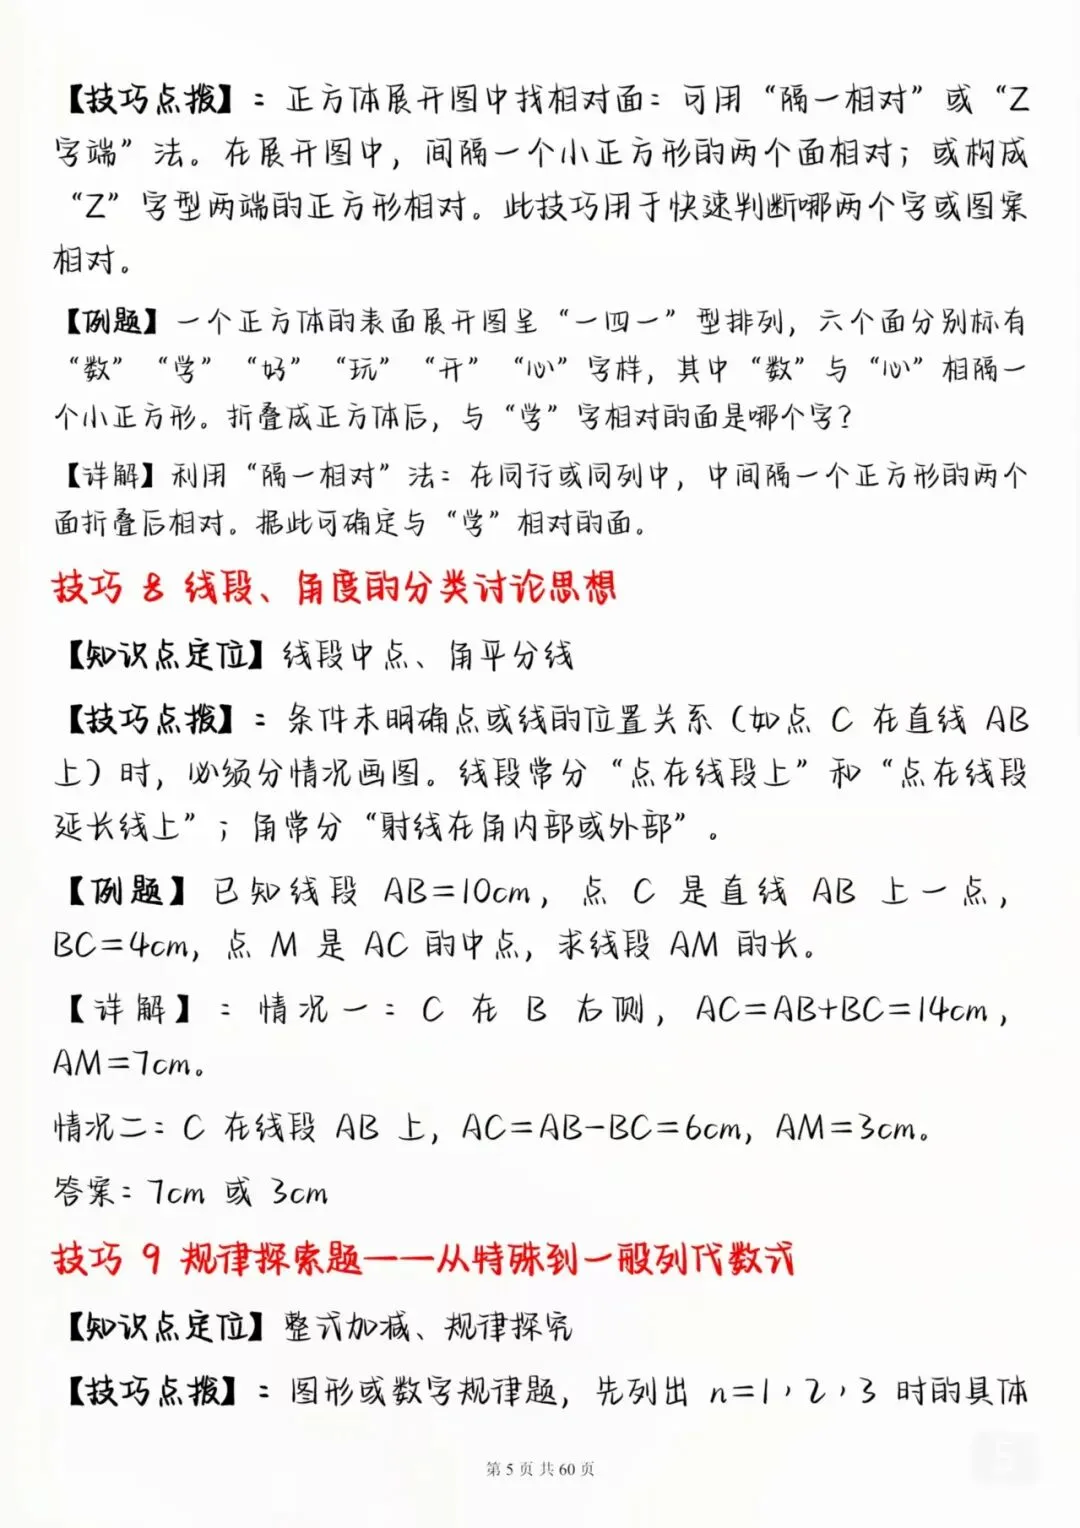 【技巧点拨】：正方体展开图中找相对面：可用“隔一相对”或“Z
字端”法。在展开图中，间隔一个小正方形的两个面相对；或构成
“Z”字型两端的正方形相对。此技巧用于快速判断哪两个字或图案
相对。
【例题】一个正方体的表面展开图呈“一四一”型排列，六个面分别标有
“数”“学”“好”“玩”“开”“心”字样，其中“数”与“心”相隔一
个小正方形。折叠成正方体后，与“学”字相对的面是哪个字？
【详解】利用“隔一相对”法：在同行或同列中，中间隔一个正方形的两个
面折叠后相对。据此可确定与“学”相对的面。
技巧 8 线段、角度的分类讨论思想
【知识点定位】线段中点、角平分线
【技巧点拨】：条件未明确点或线的位置关系（如点 C 在直线 AB
上）时，必须分情况画图。线段常分“点在线段上”和“点在线段
延长线上”；角常分“射线在角内部或外部”。
【例题】已知线段 AB=10cm，点 C 是直线 AB 上一点，
BC=4cm，点 M 是 AC 的中点，求线段 AM 的长。
【详解】：情况一：C 在 B 右侧，AC=AB+BC=14cm，
AM=7cm。
情况二：C 在线段 AB 上，AC=AB-BC=6cm，AM=3cm。
答案：7cm 或 3cm
技巧 9 规律探索题——从特殊到一般列代数式
【知识点定位】整式加减、规律探究
【技巧点拨】：图形或数字规律题，先列出 n=1，2，3 时的具体
第 5 页 共 60 页